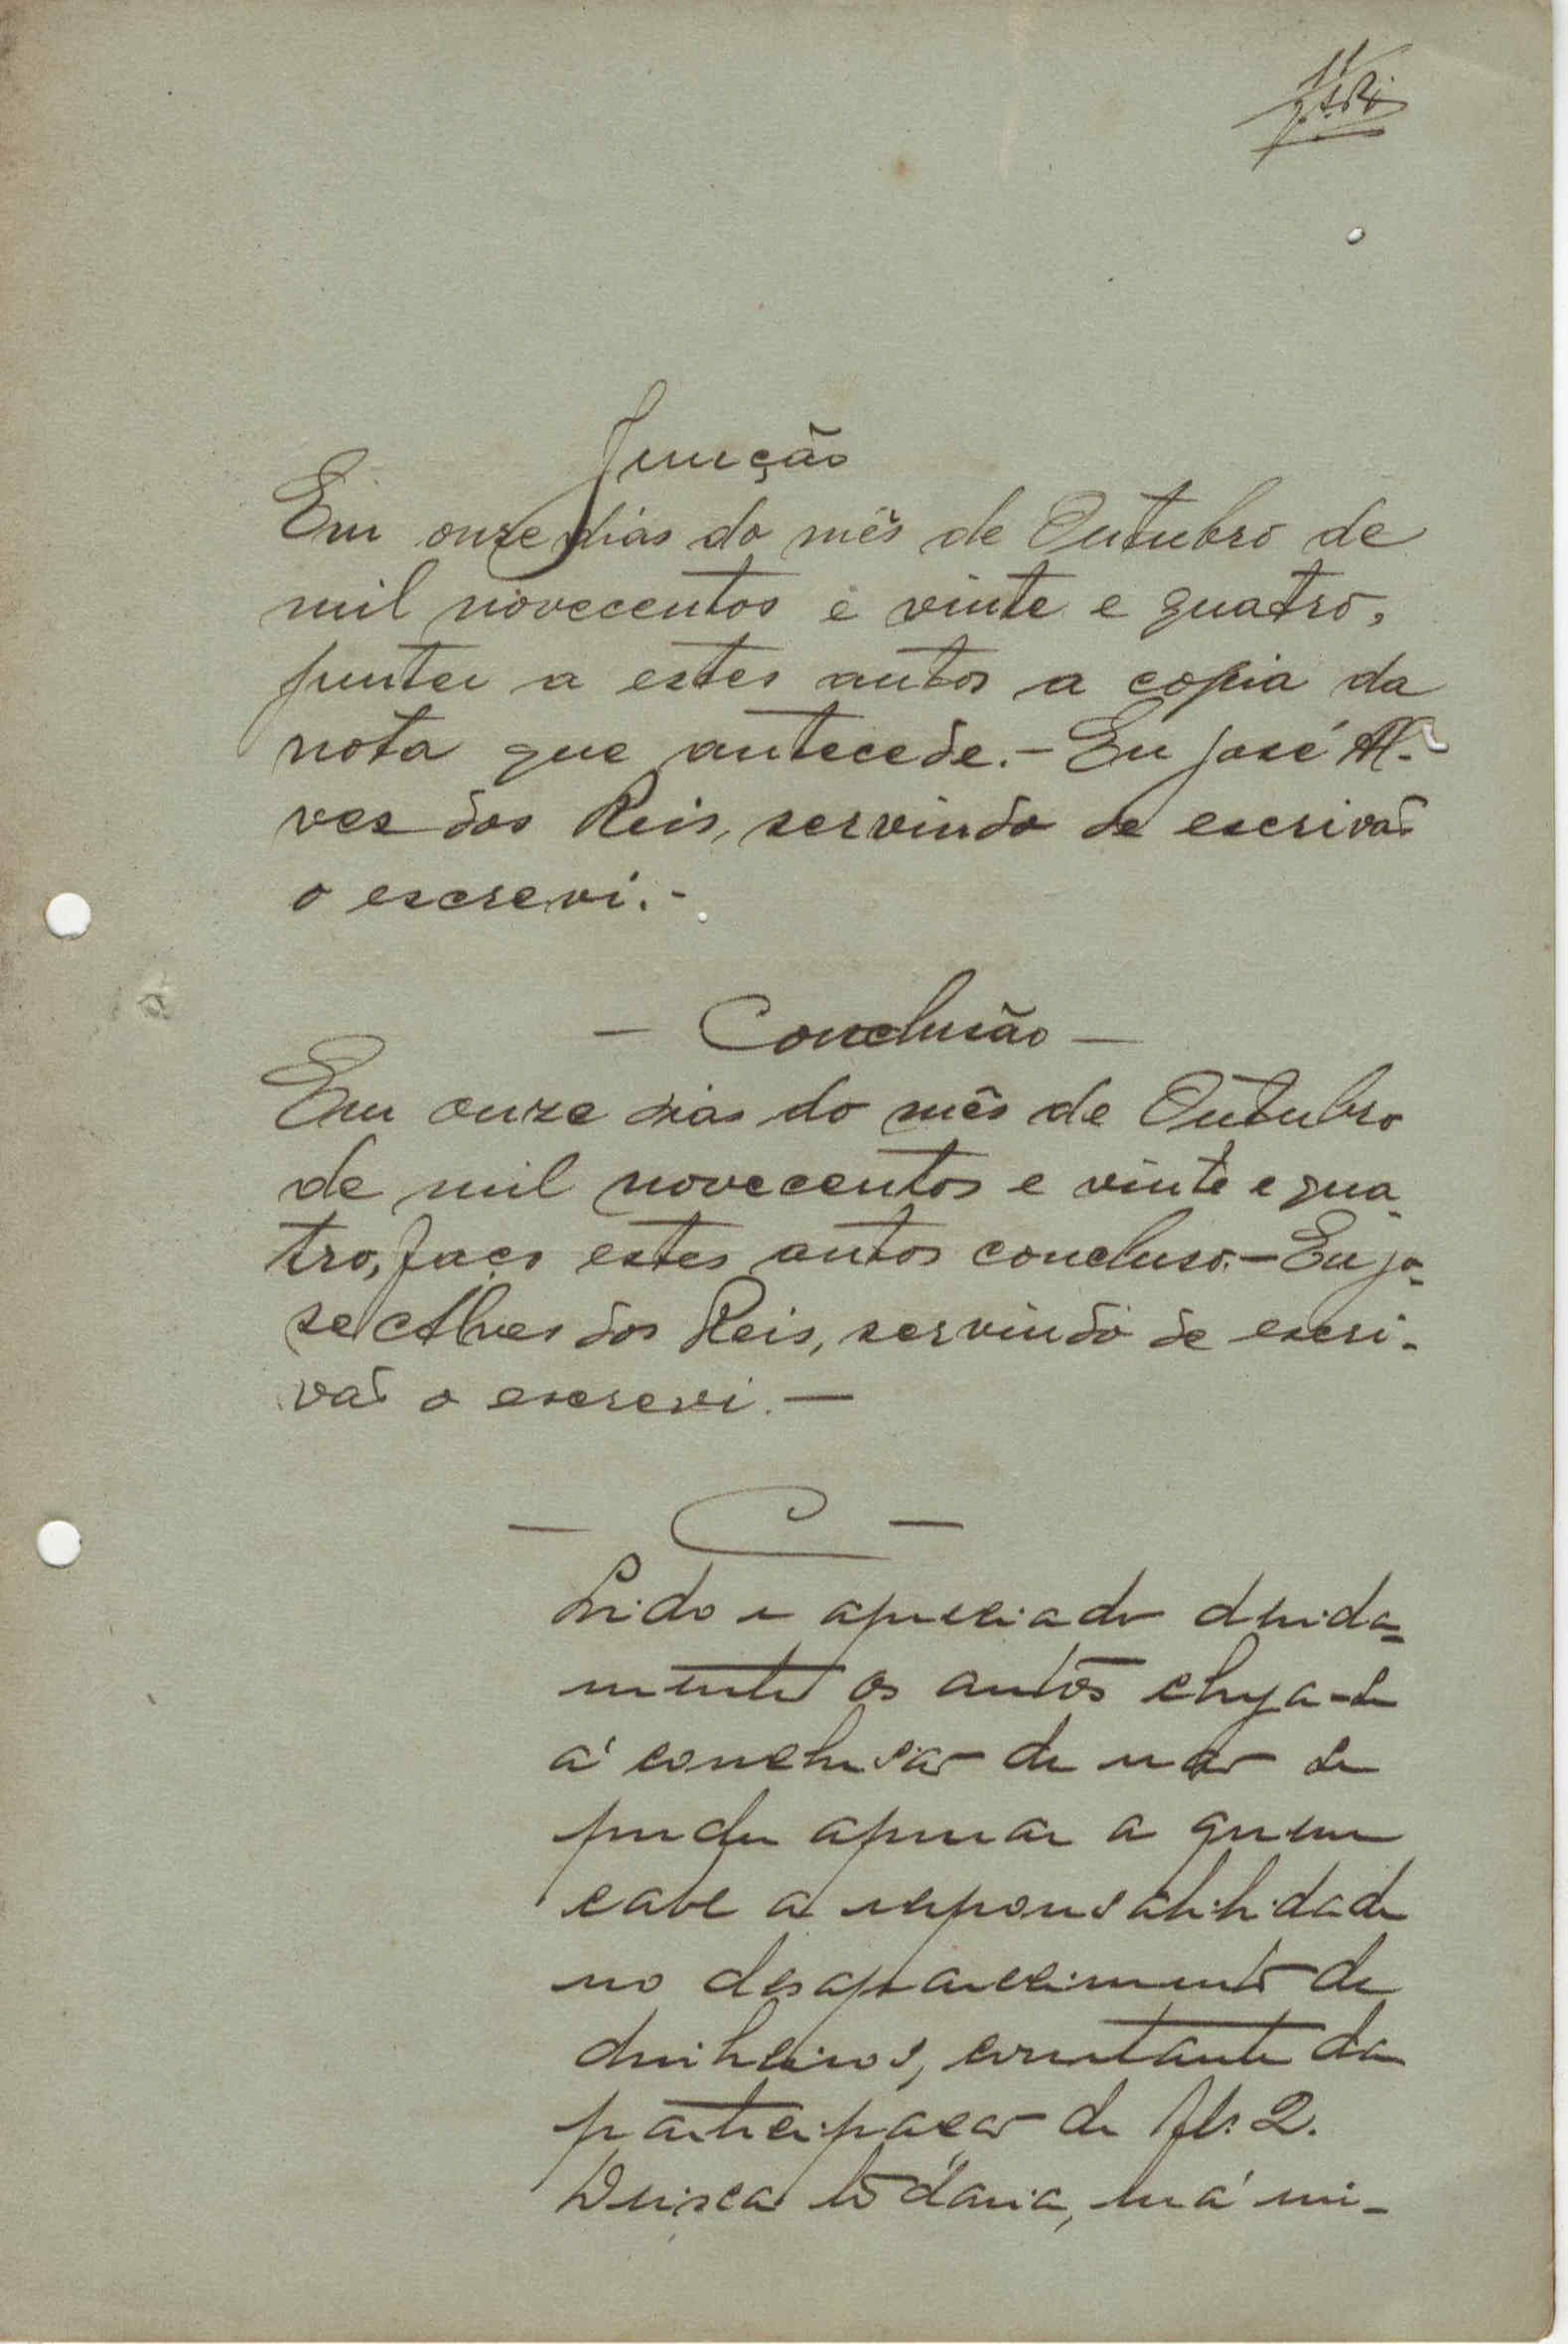 Junção
Em onze dias do mês de Outubro de
mil novecentos e vinte e quatro,
juntei a estes autos a copia da
nota que antecede.- Eu José Al-
ves dos Reis, servindo de escrivão
o escrevi.-
- Conclusão -
Em onze dias do mês de Outubro
de mil novecentos e vinte e qua-
tro, faço estes autos concluso.- Eu Jo-
se Alves dos Reis, servindo de escri-
vão o escrevi.-
- C -
Lido e apreciado devida=
mente os autos chega-se
á conclusão de não se
puder apurar a quem
cabe a responsabilidade
no desaparecimento de
dinheiros, constante da
participação de fls. 2.
todavia, má im-